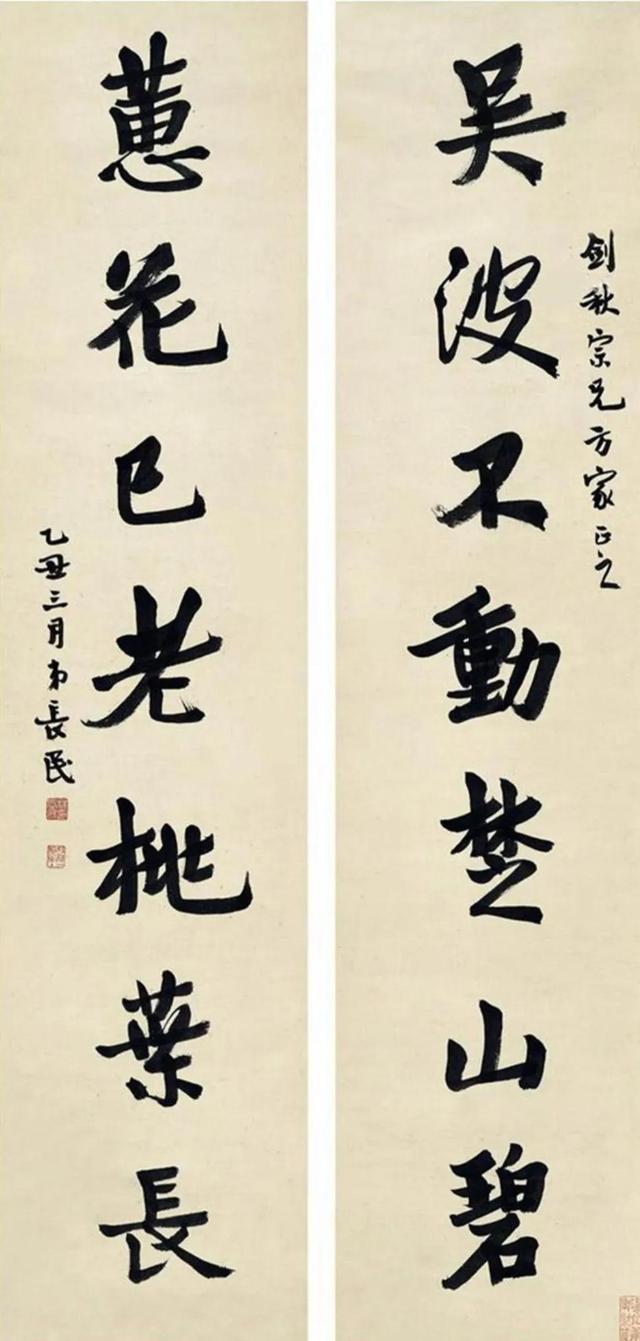 剑秋宗兄方家正之
吴波不動楚山碧
蕙花已老桃葉長
乙丑三月弟長民